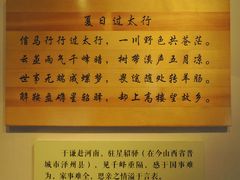 夏日过太行
信马行行过太行，一川野色共苍茫。
云蒸雨气千峰暗，树带溪声五月凉。
世事无端成蝶梦，畏途随处转羊肠。
解鞍盘礴星轺驿，却上高楼望故乡。
于谦赴河南，驻星轺驿（在今山西省晋
城市泽州县），见千峰重隔，感于国事难
为，家事难全，思亲之情溢于言表。